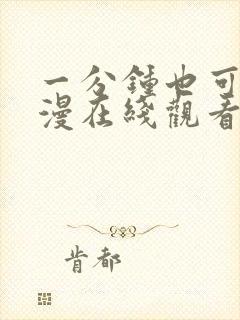 一分鍾也可
漫在綫觀看
肯都